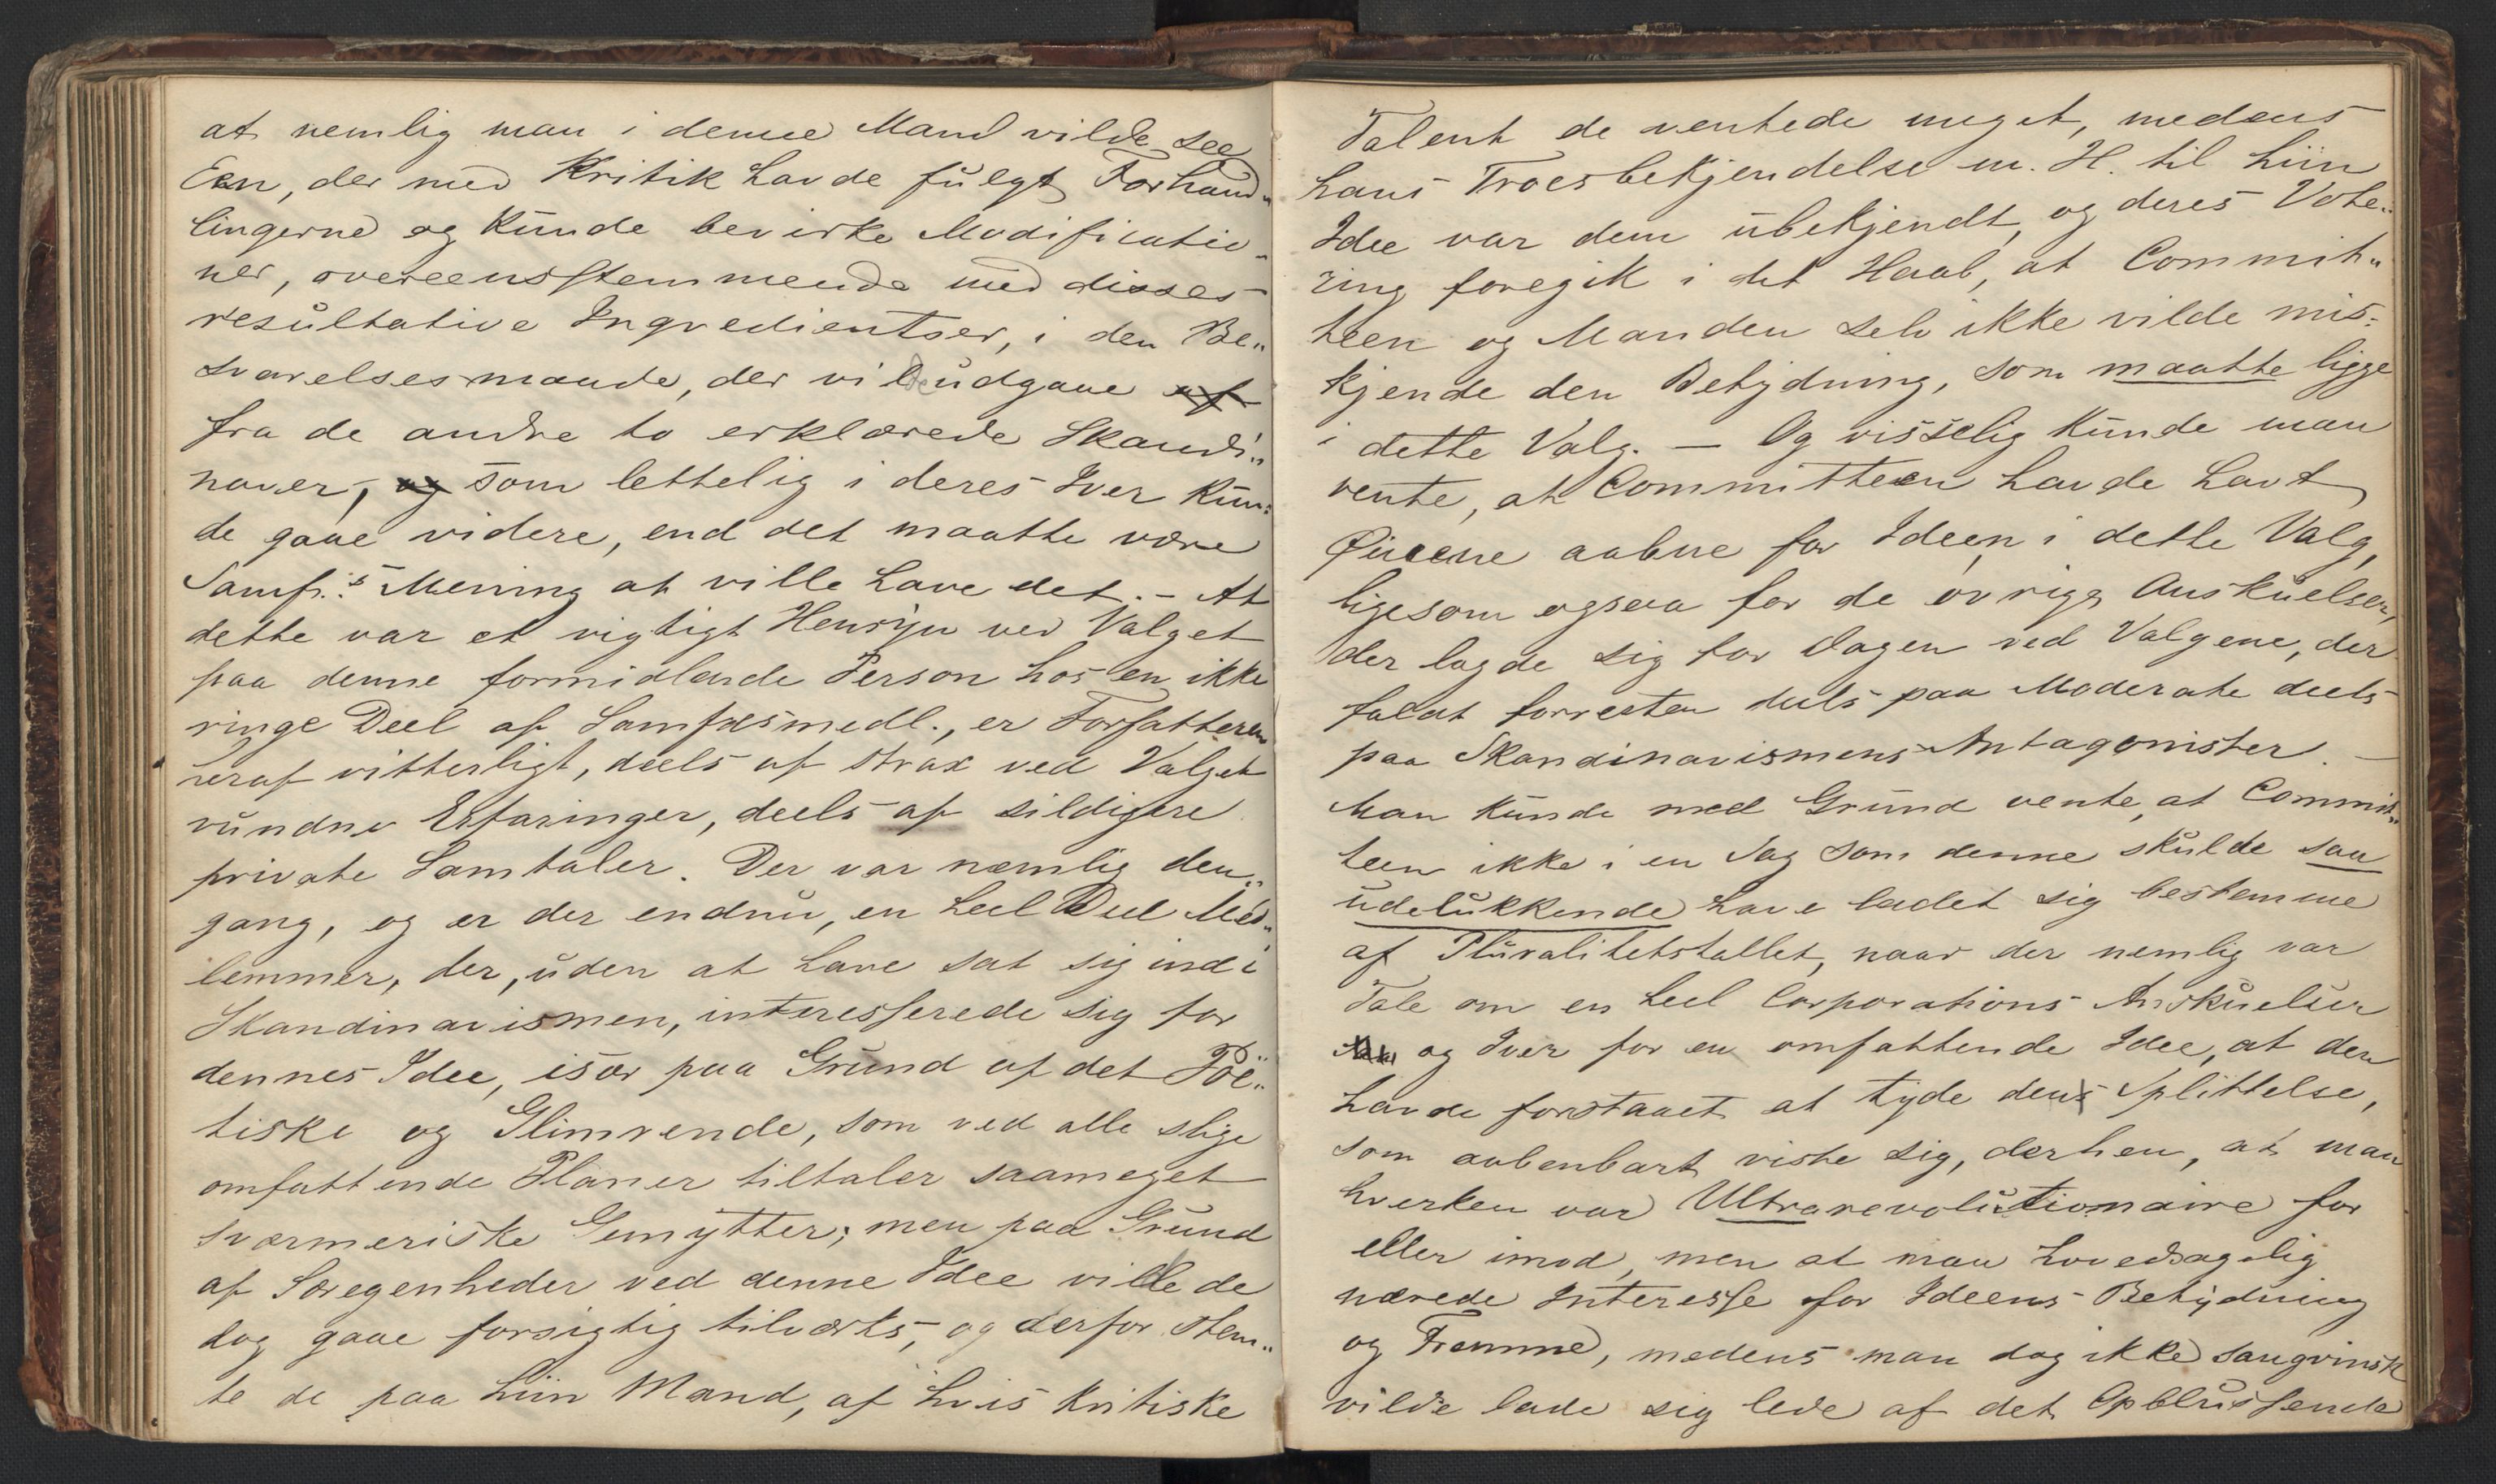 at nemlig man i denne Mand vilde see
Een, der med Kritik havde fulgt Forhand„
lingerne og kunde bevirke Modificatio„
ner, overeensstemmende med disses
resultative Ingredientser, i den Be„
svarelsesmaade, der vilde udgaae af
fra de andre to erklærede Skandi„
naver, og som lettelig i deres Iver kun„
de gaae videre, end det maatte være
Samf:s Mening at ville have det. – At
dette var et vigtigt Hensyn ved Valget
paa denne formidlende Person hos en ikke
ringe Deel af Samfdsmedl., er Forfatteren
heraf vitterligt, deels af strax ved Valget
vundne Erfaringer, deels af sildigere
private Samtaler. Der var nemlig den„
gang, og er der endnu, en heel Deel Med„
lemmer, der, uden at have sat sig ind i
Skandinavismen, interesserede sig for
dennes Idee, især paa Grund af det Poë„
tiske og Glimrende, som ved alle slige
omfattende Planer tiltaler saameget
sværmeriske Gemytter; men paa Grund
af Særegenheder ved denne Idee vilde de
dog gaae forsigtig tilværks, og derfor stem„
te de paa hiin Mand, af hvis kritiske
Talent de ventede meget, medens
hans Troesbekjendelse m. H. til hiin
Idee var dem ubekjendt, og deres Vote„
ring foregik i det Haab, at Committ„
teen og Manden selv ikke vilde mis„
kjende den Betydning, som maatte ligge
i dette Valg. – Og visselig kunde man
vente, at Committeen havde havt
Øinene aabne for Ideen i dette Valg,
ligesom ogsaa for de øvrige Anskuelser,
der lagde sig for Dagen ved Valgene, der
faldt forresten deels paa Moderate deels
paa Skandinavismens Antagonister. –
Man kunde med Grund vente, at Commit„
teen ikke i en Sag som denne skulde saa
udelukkende have ladet sig bestemme
af Pluralitetstallet, naar der nemlig var
Tale om en heel Corporations Anskuelser
og Iver for en omfattende Idee, at den
havde forstaaet at tyde den Splittelse,
som aabenbart viste sig, derhen, at man
hverken var Ultrarevolutionaire for
eller imod, men at man hovedsagelig
nærede Interesse for Ideens Betydning
og Fremme, medens man dog ikke sangvinsk
vilde lade sig lede af det Opblussende